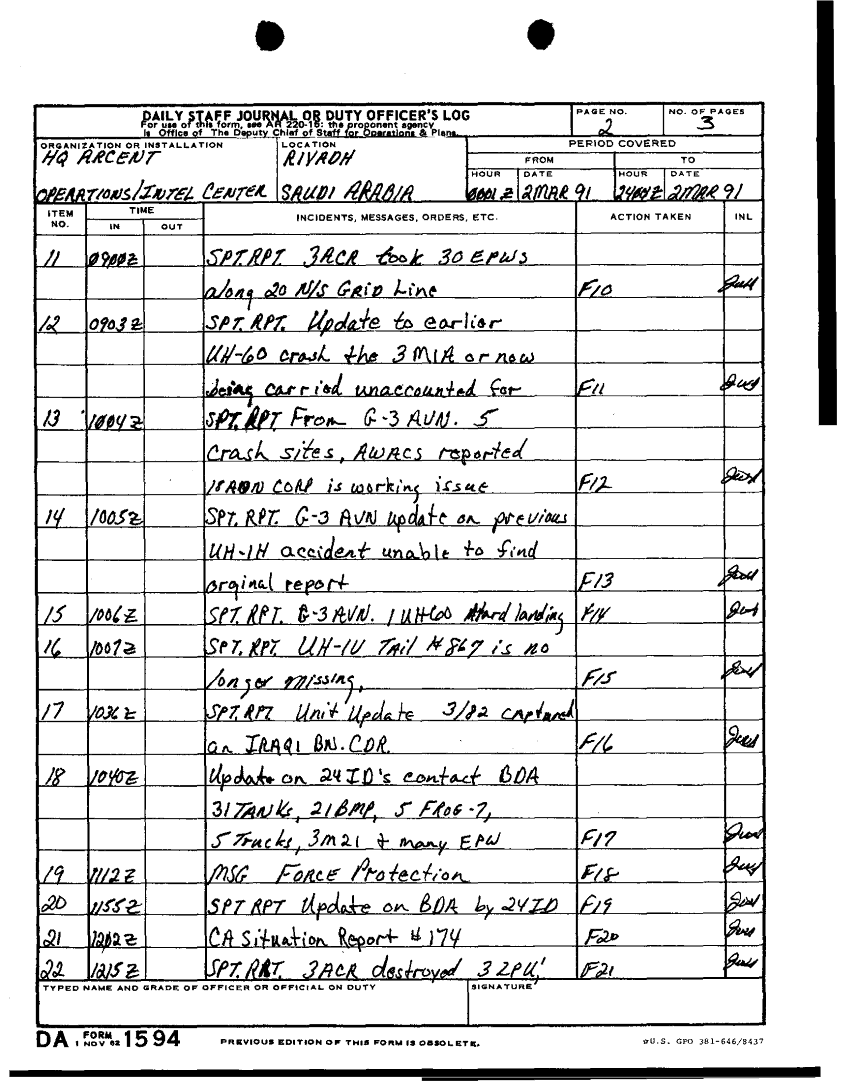 DAILY STAFF JOURNAL OR DUTY OFFICER'S LOG
For use of this form, see AR 220-15; the proponent agency
is Office of The Deputy Chief of Staff for Operations & Plans.
PAGE NO.
2
NO. OF PAGES
3
ORGANIZATION OR INSTALLATION
HQ ARCENT
OPERATIONS/INTEL CENTER
LOCATION
RIYADH
SAUDI ARABIA
PERIOD COVERED
FROM
TO
HOUR
DATE
HOUR
DATE
0001 Z
2 MAR 91
2400 Z
2 MAR 91
ITEM NO.
TIME
IN
OUT
INCIDENTS, MESSAGES, ORDERS, ETC.
ACTION TAKEN
INL
11 0900Z SPT.RPT. 3ACR took 30 EPWs
along 20 N/S GRID Line F10
12 0903Z SPT. RPT. Update to earlier
UH-60 crash the 3 MIA or now
being carried unaccounted for F11
13 1004Z SPT. RPT From G-3 AVN. 5
Crash sites, AWACS reported
18 ABN CORP is working issue F12
14 1005Z SPT. RPT. G-3 AVN update on previous
UH-1H accident unable to find
orginal report F13
15 1006Z SPT. RPT. G-3 AVN. 1 UH60 Hard landing F14
16 1007Z SPT. RPT. UH-1V Tail # 867 is no
longer missing, F15
17 1036Z SPT. RPT Unit Update 3/82 captured
an IRAQI BN. CDR. F16
18 1040Z Update on 24 ID's contact BDA
31 TANKs, 21 BMP, 5 FROG-7,
5 Trucks, 3 m21 + many EPW F17
19 1112Z MSG FORCE Protection F18
20 1155Z SPT RPT Update on BDA by 24 ID F19
21 1202Z CA Situation Report # 174 F20
22 1215Z SPT. RRT. 3ACR destroyed 3 ZPU, F21
TYPED NAME AND GRADE OF OFFICER OR OFFICIAL ON DUTY
SIGNATURE
DA FORM 1594
1 NOV 62
PREVIOUS EDITION OF THIS FORM IS OBSOLETE.
☆U.S. GPO 381-646/8437